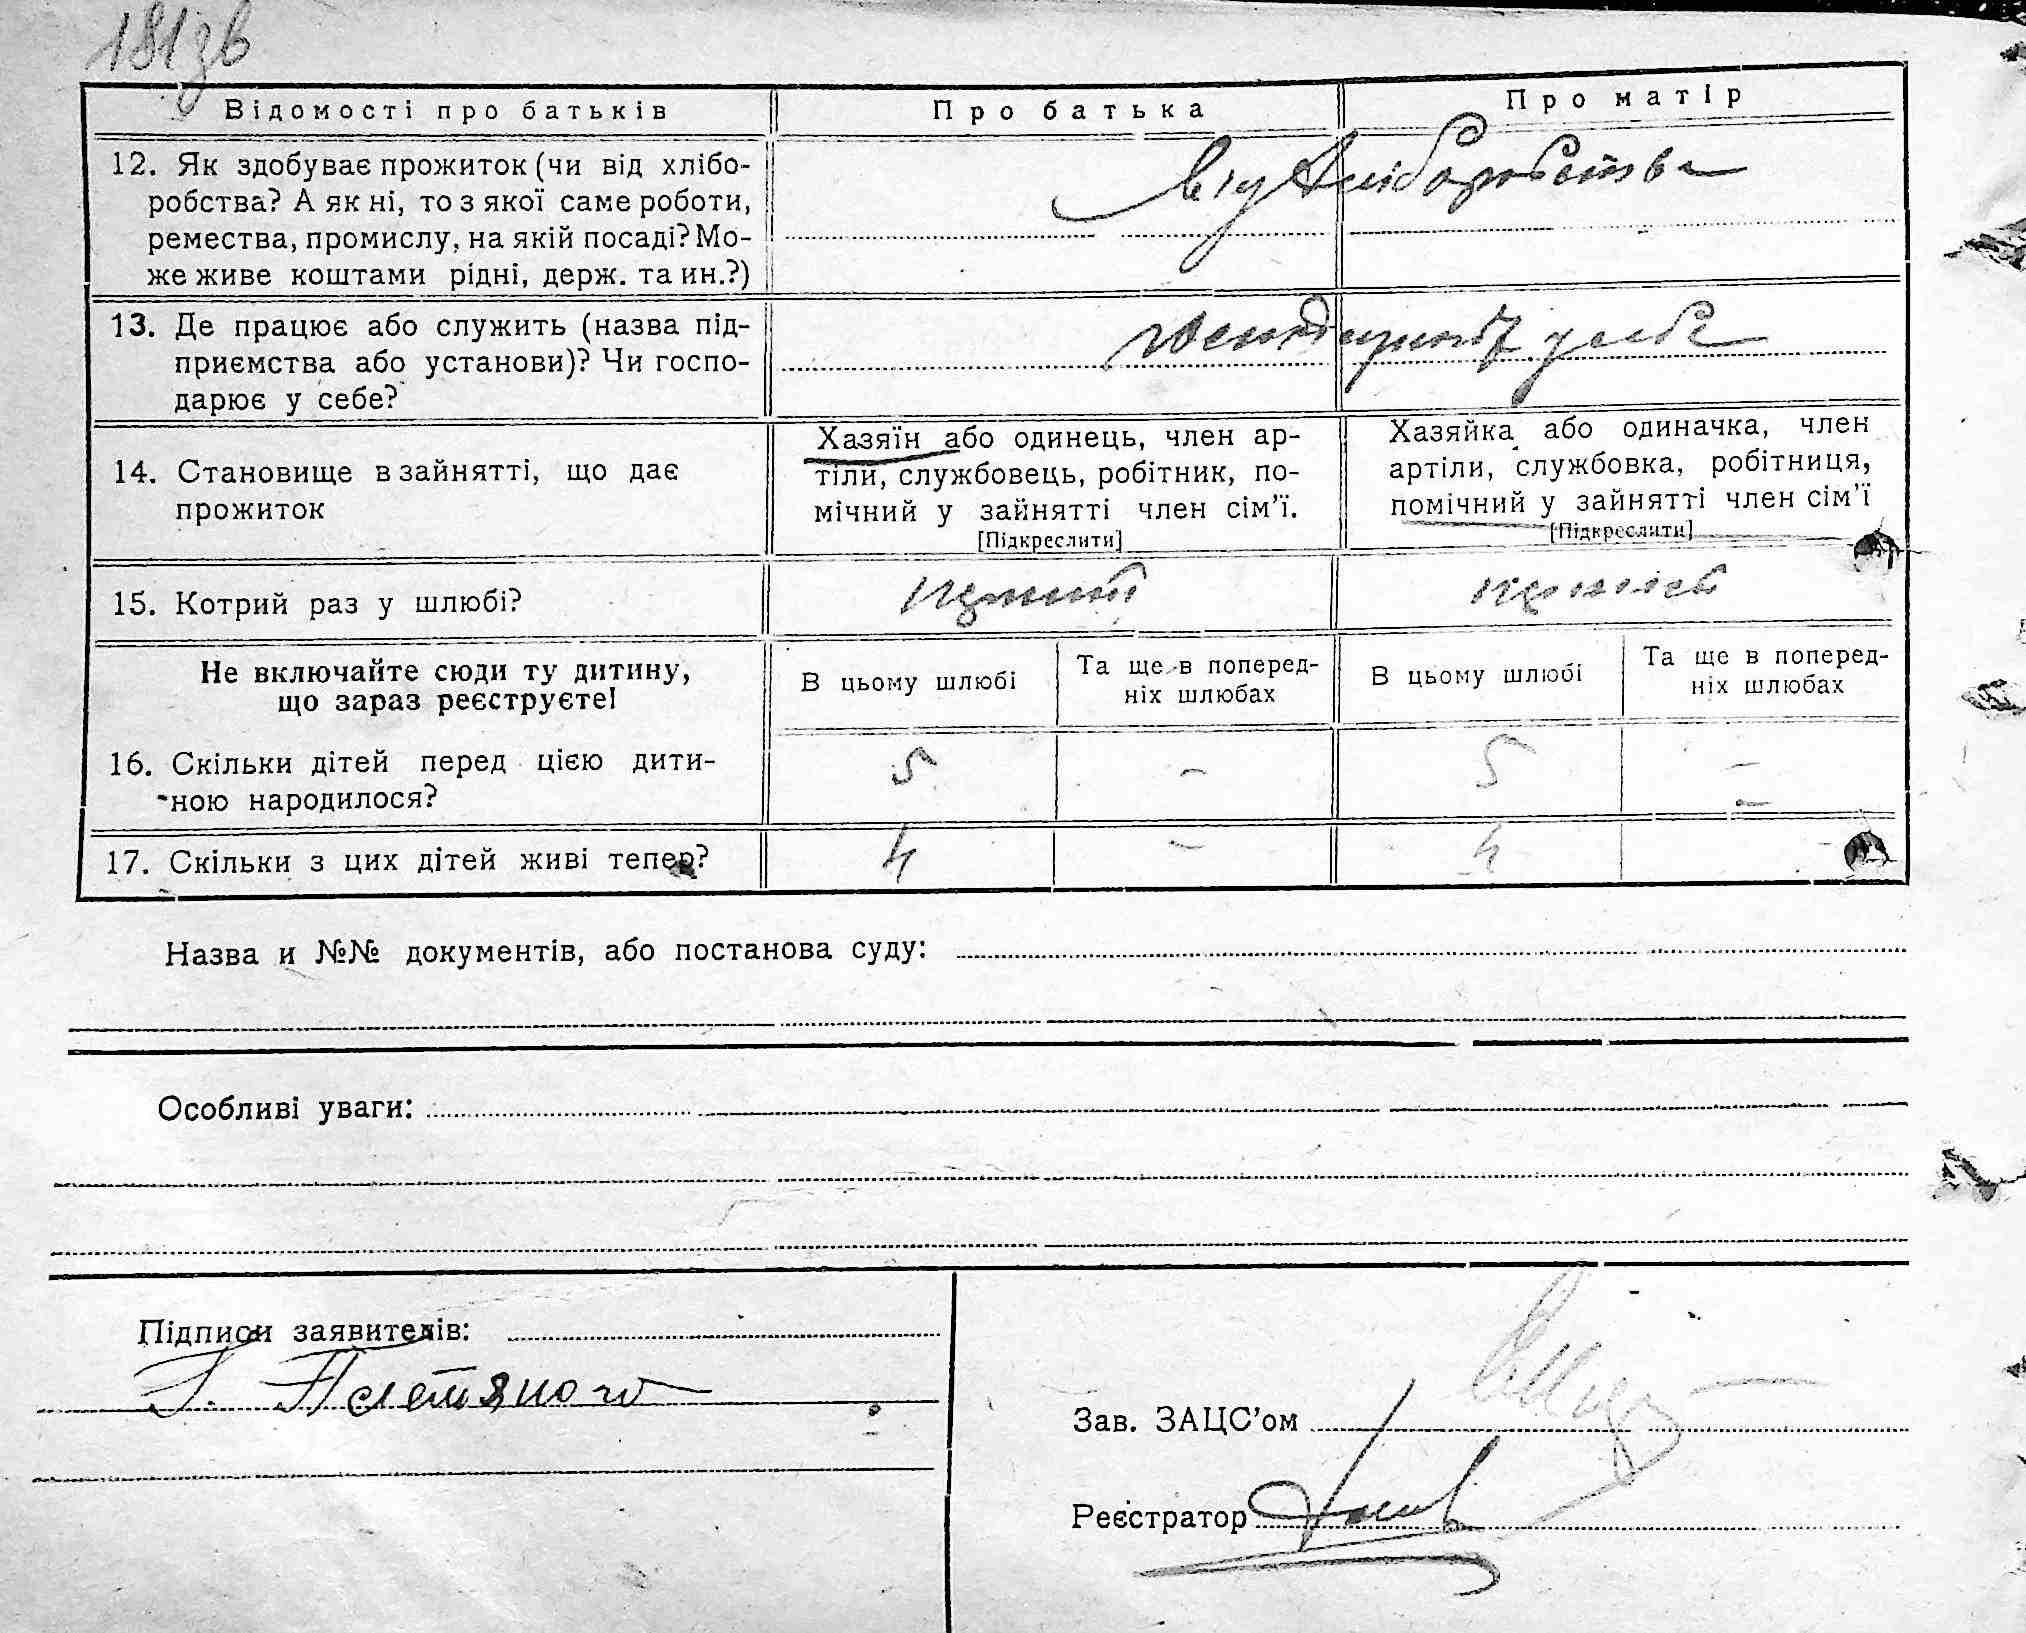 181зв
Відомості про батьків
Про батька
Про матір
12. Як здобуває прожиток (чи від хлібо-
робства? А як ні, то з якої саме роботи,
ремества, промислу, на якій посаді? Мо-
же живе коштами рідні, держ. та ин.?)
від хліборобства
13. Де працює або служить (назва під-
приємства або установи)? Чи госпо-
дарює у себе?
у себе
14. Становище в зайнятті, що дає
прожиток
Хазяїн або одинець, член ар-
тіли, службовець, робітник, по-
мічний у зайнятті член сім’ї.
[Підкреслити]
Хазяйка або одиначка, член
артіли, службовка, робітниця,
помічний у зайнятті член сім’ї
[Підкреслити]
15. Котрий раз у шлюбі?
Не включайте сюди ту дитину,
що зараз реєструєте!
В цьому шлюбі
Та ще в поперед-
ніх шлюбах
В цьому шлюбі
Та ще в поперед-
ніх шлюбах
16. Скільки дітей перед цією дити-
ною народилося?
5 – 5 –
17. Скільки з цих дітей живі тепер?
4 – 4 –
Назва и №№ документів, або постанова суду:
Особливі уваги:
Підписи заявителів:
Зав. ЗАЦС’ом
Реєстратор